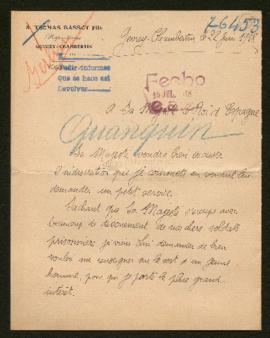 A. THOMAS BASSOT Fils
GEVREY-CHAMBERTIN
76453
Gevrey-Chambertin le 22 Juin 1918
Pedir informes
Que se hace así
Devolver
Fecho
A Sa Majesté le Roi d'Espagne
Quanquin
Sa Majesté voudra bien excuser
l'indiscrétion que je commets en venant lui
demander un petit service.
Sachant que Sa Majesté s'occupe avec
beaucoup de dévouement de nos chers soldats
prisonniers je viens lui demander de bien
vouloir me renseigner sur le sort d'un jeune
homme, pour qui je porte le plus grand
intérêt.